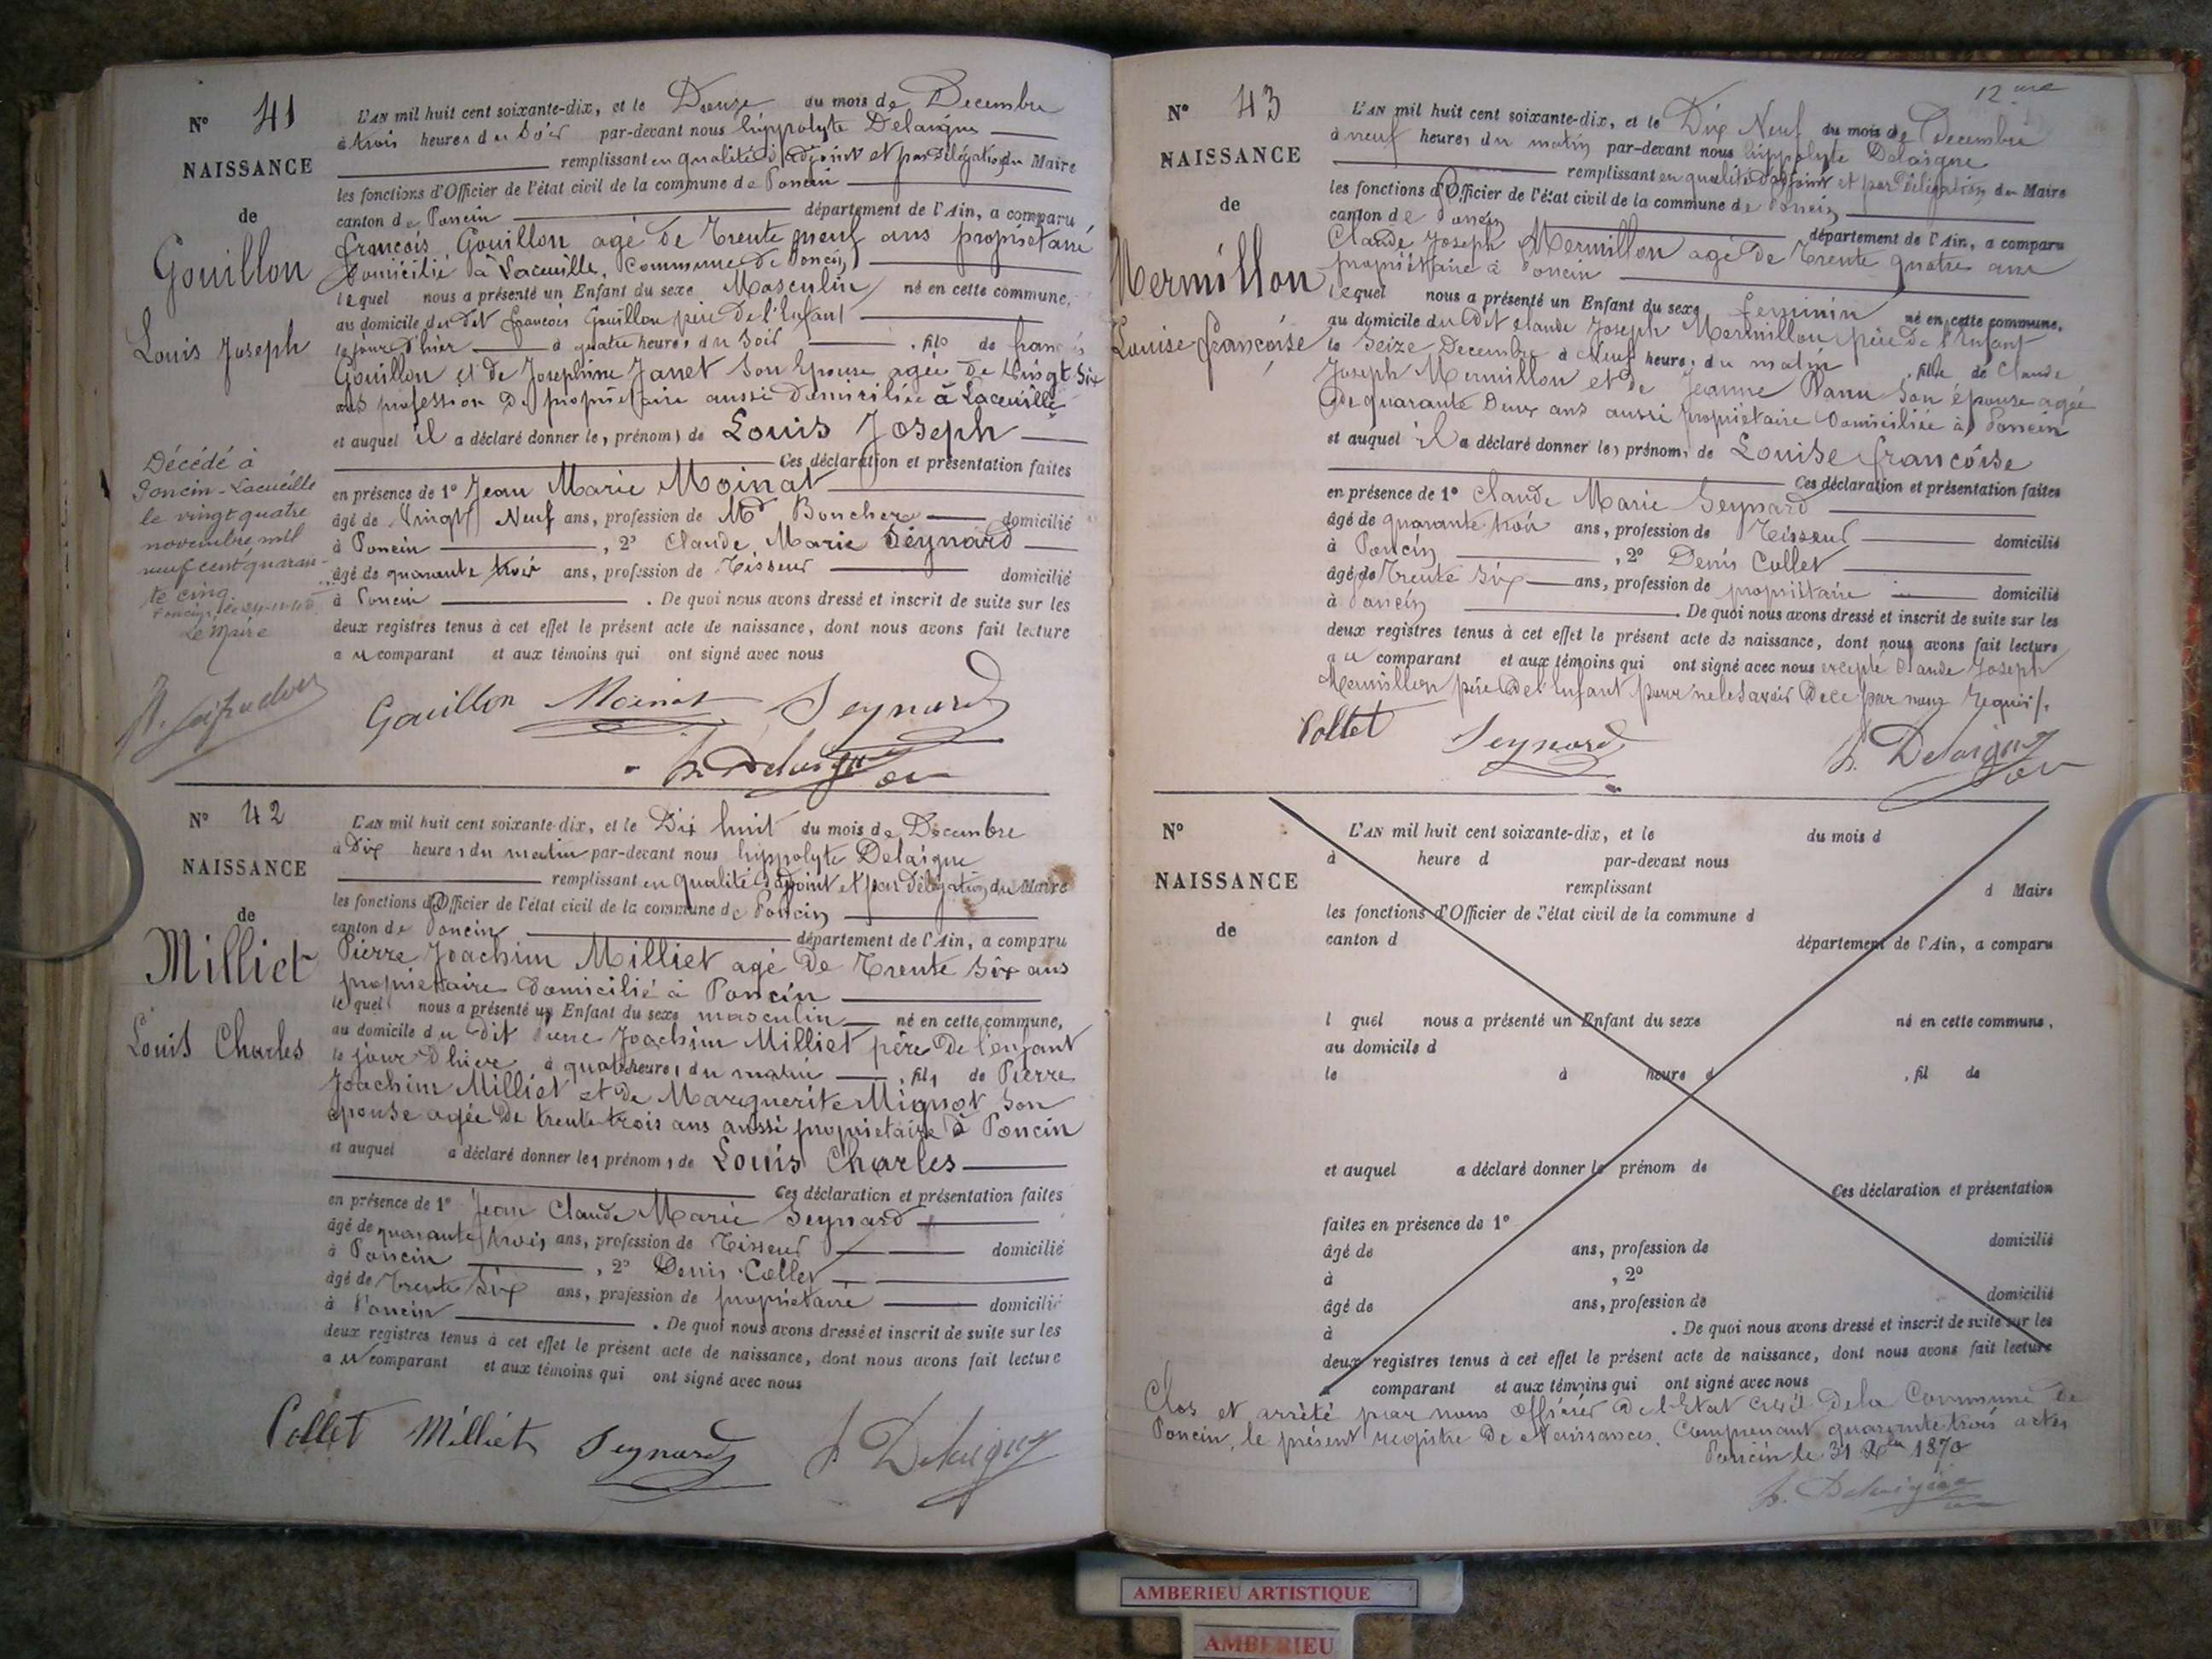 N° 41
NAISSANCE
de
Gouillon
Louis Joseph
Décédé à
Poncin-Lacueille
le vingt quatre
novembre mil
neuf cent quaran-
te cinq.
Poncin, le 24-11-45
Le Maire
L'AN mil huit cent soixante-dix, et le Douze du mois de Decembre
à trois heures du Soir par-devant nous hippolyte Delaigue
remplissant en qualité d'adjoint et par délégation du Maire
les fonctions d'Officier de l'état civil de la commune de Poncin
canton de Poncin département de l'Ain, a comparu
françois Gouillon agé de Trente neuf ans propriétaire
Domicilié à Lacueille, Commune de Poncin
lequel nous a présenté un Enfant du sexe Masculin né en cette commune,
au domicile du dit françois Gouillon père De l'Enfant
le jour d'hier à quatre heures du Soir , fils de françois
Gouillon et de Josephine Janet Son Epouse agée de Vingt Six
ans profession De propriétaire aussi domiciliée à Lacueille
et auquel il a déclaré donner les prénoms de Louis Joseph
Ces déclaration et présentation faites
en présence de 1° Jean Marie Moinat
âgé de Vingt Neuf ans, profession de Md Boucher domicilié
à Poncin , 2° Claude Marie Seynard
âgé de quarante trois ans, profession de Tisseur domicilié
à Poncin . De quoi nous avons dressé et inscrit de suite sur les
deux registres tenus à cet effet le présent acte de naissance, dont nous avons fait lecture
au comparant et aux témoins qui ont signé avec nous
Gouillon Moinat Seynard
h. Delaigue
N° 42
NAISSANCE
de
Milliet
Louis Charles
L'AN mil huit cent soixante-dix, et le Dix huit du mois de Decembre
à Dix heures du matin par-devant nous hippolyte Delaigue
remplissant en qualité d'adjoint et par délégation du Maire
les fonctions d'Officier de l'état civil de la commune de Poncin
canton de Poncin département de l'Ain, a comparu
Pierre Joachim Milliet agé De Trente Six ans
propriétaire Domicilié à Poncin
lequel nous a présenté un Enfant du sexe masculin né en cette commune,
au domicile du dit Pierre Joachim Milliet père De l'enfant
le jour D'hier à quatre heures du matin , fils de Pierre
Joachim Milliet et De Marguerite Mignot Son
épouse agée De trente trois ans aussi propriétaire à Poncin
et auquel a déclaré donner les prénoms de Louis Charles
Ces déclaration et présentation faites
en présence de 1° Jean Claude Marie Seynard
âgé de quarante trois ans, profession de Tisseur domicilié
à Poncin , 2° Denis Collet
âgé de Trente Six ans, profession de propriétaire domicilié
à Poncin . De quoi nous avons dressé et inscrit de suite sur les
deux registres tenus à cet effet le présent acte de naissance, dont nous avons fait lecture
au comparant et aux témoins qui ont signé avec nous
Collet Milliet Seynard h. Delaigue
N° 43
NAISSANCE
de
Mermillon
Louise françoise
12me
L'AN mil huit cent soixante-dix, et le Dix Neuf du mois de Decembre
à neuf heures du matin par-devant nous hippolyte Delaigue
remplissant en qualité d'adjoint et par délégation du Maire
les fonctions d'Officier de l'état civil de la commune de Poncin
canton de Poncin département de l'Ain, a comparu
Claude Joseph Mermillon agé De Trente quatre ans
propriétaire à Poncin
lequel nous a présenté un Enfant du sexe feminin né en cette commune,
au domicile du Dit Claude Joseph Mermillon père De l'Enfant
le Seize Decembre à Neuf heures du matin , fille de Claude
Joseph Mermillon et de Jeanne Vanu Son épouse agée
De quarante Deux ans aussi propriétaire Domiciliée à Poncin
et auquel il a déclaré donner les prénoms de Louise françoise
Ces déclaration et présentation faites
en présence de 1° Claude Marie Seynard
âgé de quarante trois ans, profession de Tisseur domicilié
à Poncin , 2° Denis Collet
âgé de Trente Six ans, profession de propriétaire domicilié
à Poncin De quoi nous avons dressé et inscrit de suite sur les
deux registres tenus à cet effet le présent acte de naissance, dont nous avons fait lecture
au comparant et aux témoins qui ont signé avec nous excepté Claude Joseph
Mermillon père De l'Enfant pour ne le Savoir De ce par nous requis.
Collet Seynard h. Delaigue
N°
NAISSANCE
de
L'AN mil huit cent soixante-dix, et le du mois d
à heure d par-devant nous
remplissant d Maire
les fonctions d'Officier de l'état civil de la commune d
canton d département de l'Ain, a comparu
l quel nous a présenté un Enfant du sexe né en cette commune,
au domicile d
le à heure d , fil de
et auquel a déclaré donner le prénom de
Ces déclaration et présentation
faites en présence de 1°
âgé de ans, profession de domicilié
à , 2°
âgé de ans, profession de domicilié
à . De quoi nous avons dressé et inscrit de suite sur les
deux registres tenus à cet effet le présent acte de naissance, dont nous avons fait lecture
a comparant et aux témoins qui ont signé avec nous
Clos et arrêté par nous Officier De l'Etat Civil De la Commune De
Poncin, le présent registre De Naissances. Comprenant quarante trois actes
Poncin le 31 Xbre 1870
h. Delaigue
AMBERIEU ARTISTIQUE
AMBERIEU